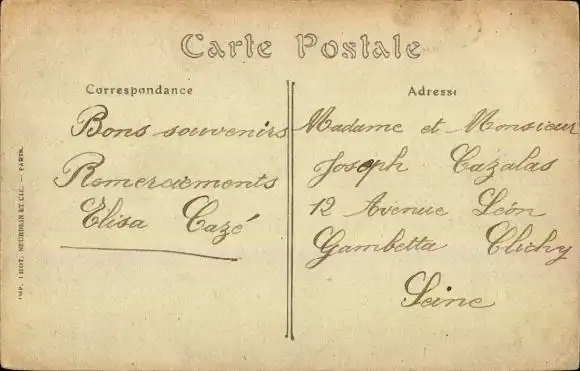 Carte Postale
Correspondance
Bons souvenirs
Remerciements
Elisa Cazé
Adresse
Madame et Monsieur
Joseph Cazalas
12 Avenue Léon
Gambetta Clichy
Seine
IMP. PHOT. NEURDEIN ET CIE. — PARIS.